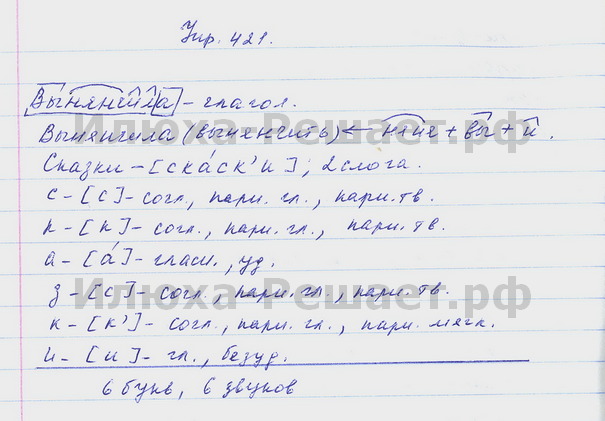 Упр. 421.
Вы́нянчила – глагол.
Вынянчила (вынянчить) ← няня + вы + и.
Сказки – [ска́ск'и]; 2 слога.
с – [с] – согл., парн. гл., парн. тв.
к – [к] – согл., парн. гл., парн. тв.
а – [а́] – гласн., уд.
з – [с] – согл., парн. гл., парн. тв.
к – [к'] – согл., парн. гл., парн. мягк.
и – [и] – гл., безуд.
6 букв, 6 звуков
Илюха-Решает.рф
Илюха-Решает.рф